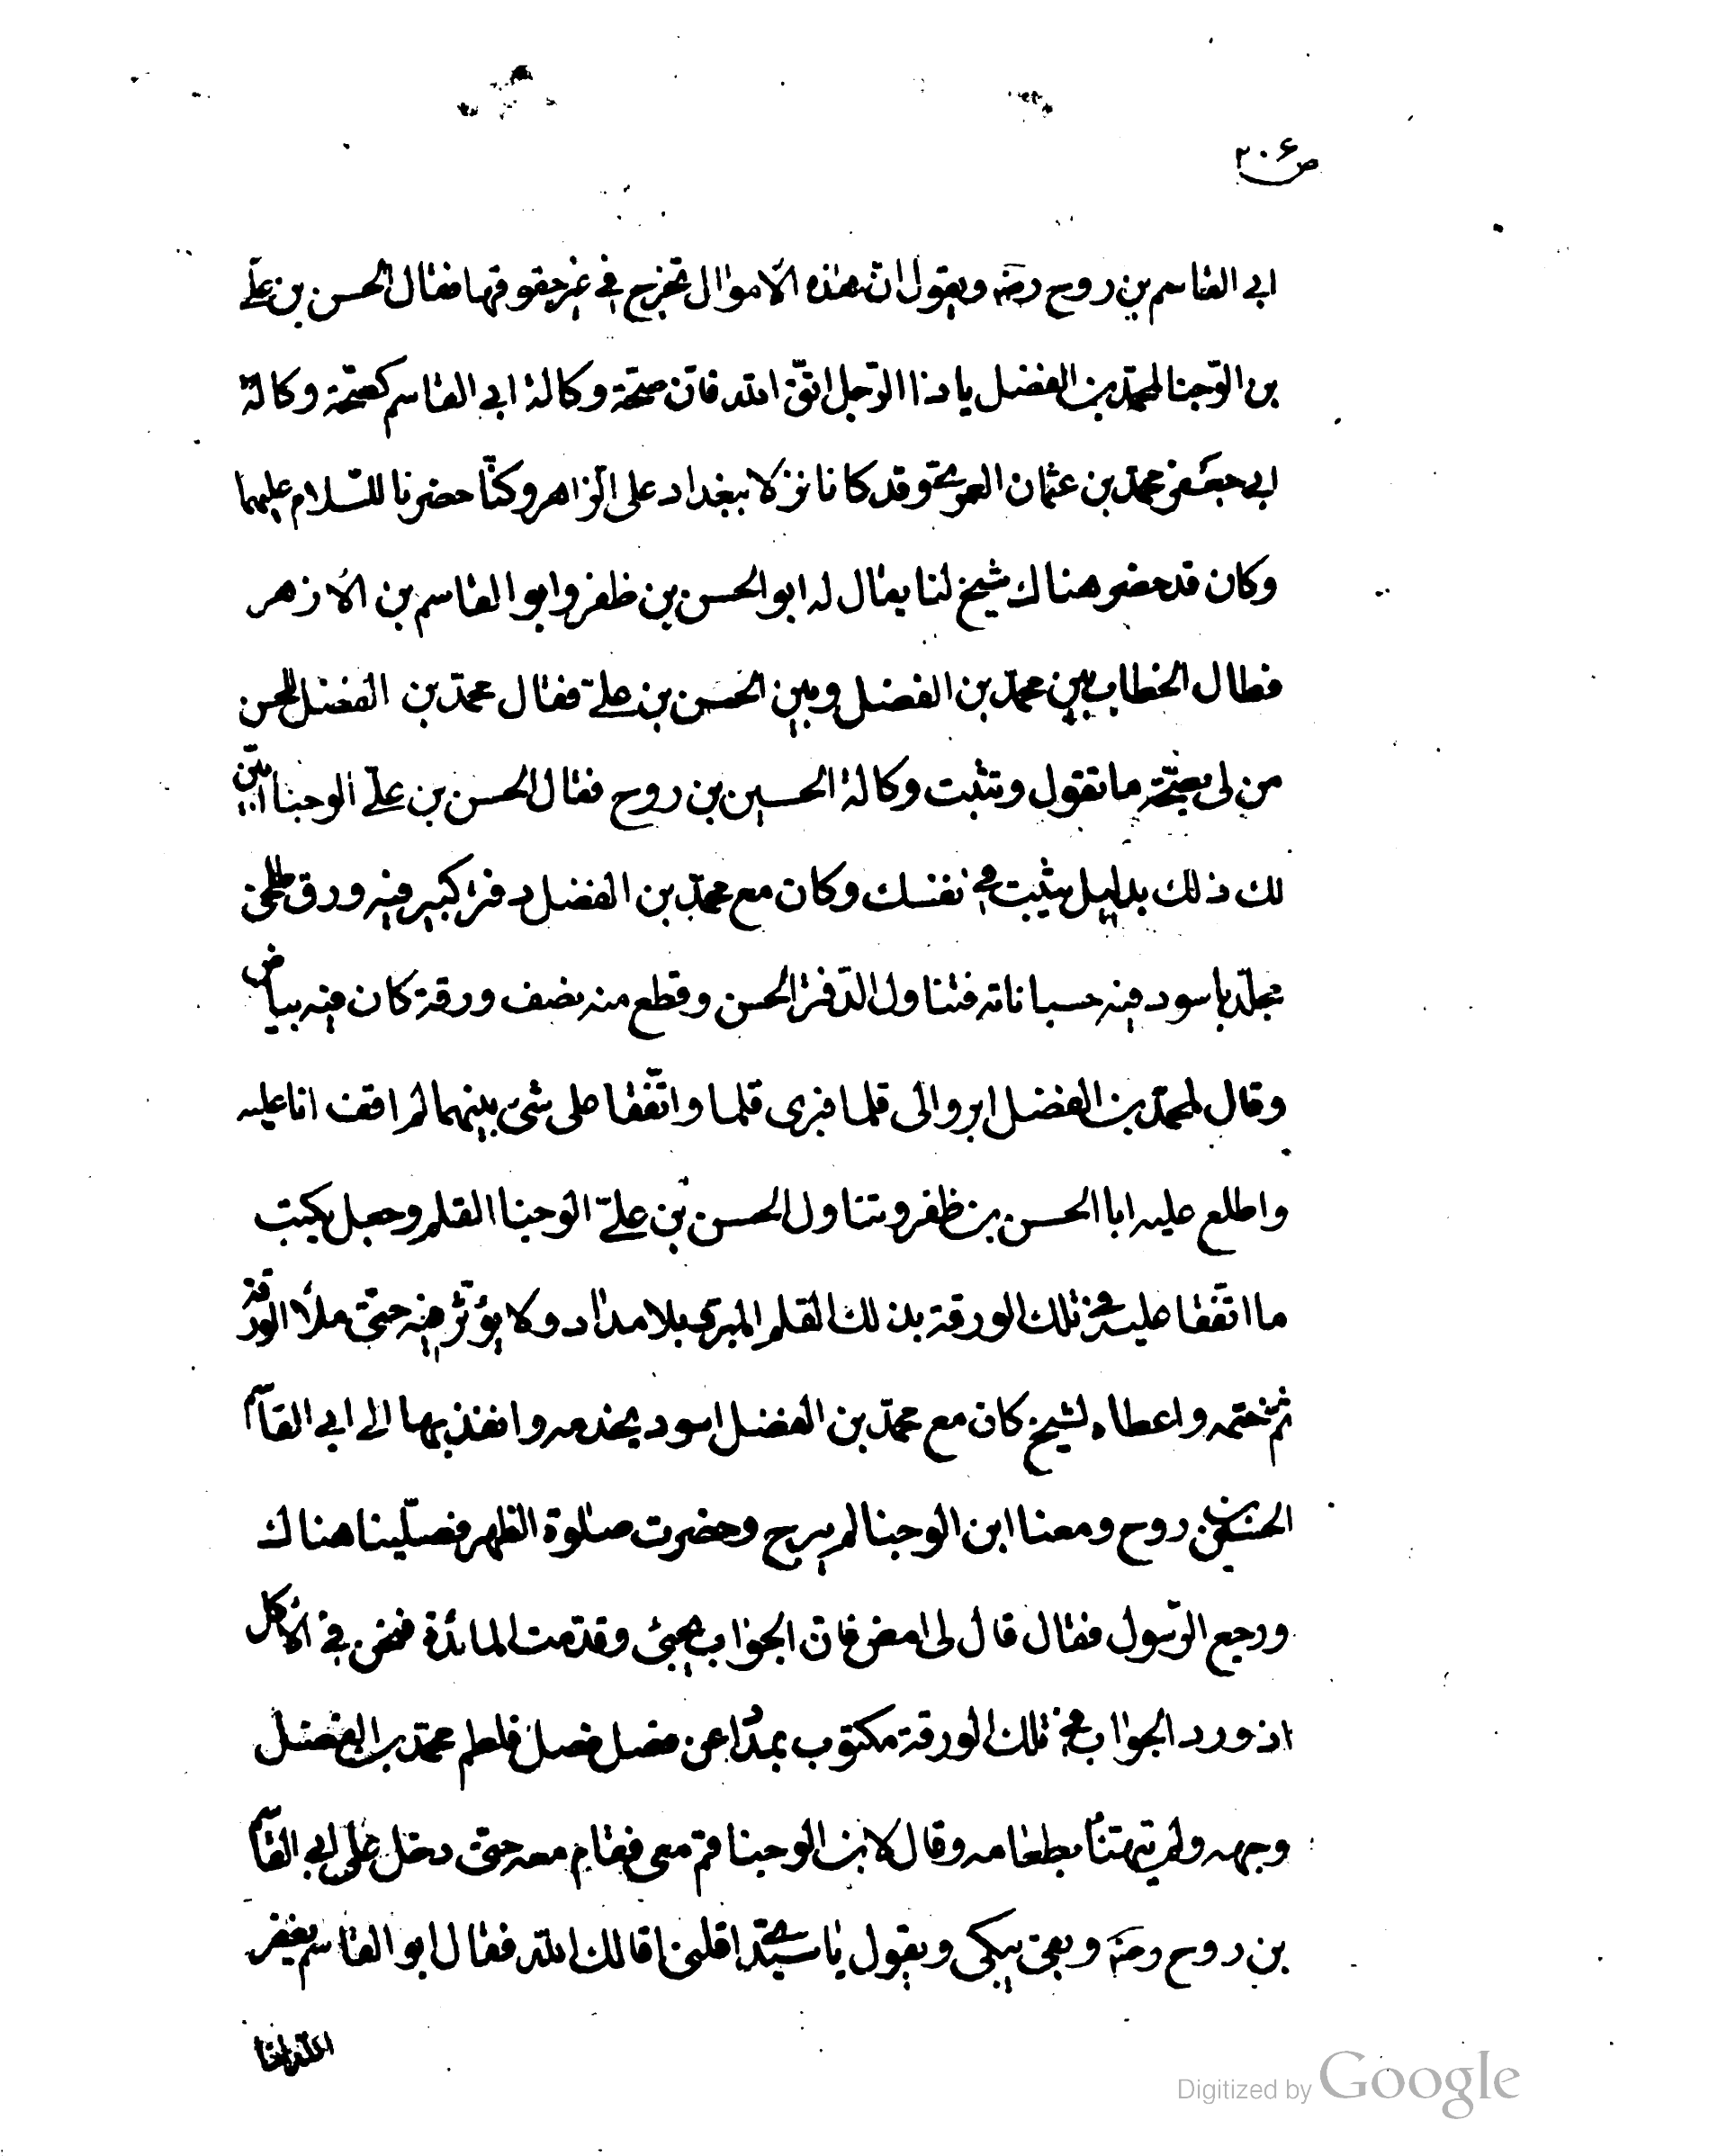 ص۲۰۶
ابى القاسم بن روح رضه ويقول ان هذه الاموال تخرج في غير حقوقها فقال الحسن بن علي
بن الوجنا لمحمد بن الفضل يا ذا الرجل اتق الله فان صحة وكالة ابى القاسم كصحة وكالة
ابى جعفر محمد بن عثمان العمري وقد كانا نزلا ببغداد على الزاهر وكنا حضرنا للسلام عليهما
وكان قد حضر هناك شيخ لنا يقال له ابو الحسن بن ظفر وابو القاسم بن الازهر
فطال الخطاب بين محمد بن الفضل وبين الحسن بن علي فقال محمد بن الفضل للحسن
من لى بصحة ما تقول وتثبت وكالة الحسين بن روح فقال الحسن بن علي الوجنا ابين
لك ذلك بدليل يثبت في نفسك وكان مع محمد بن الفضل دفتر كبير فيه ورق طلحى
مجلد باسود فيه حسباناته فتناول الدفتر الحسن وقطع منه نصف ورقة كان فيه بياض
وقال لمحمد بن الفضل ابروا لى قلما فبرى قلما واتفقا على شىء بينهما لم اقف انا عليه
واطلع عليه ابا الحسن بن ظفر وتناول الحسن بن علي الوجنا القلم وجعل يكتب
ما اتفقا عليه في تلك الورقة بذلك القلم المبرى بلا مداد ولا يؤثر فيه حتى ملأ الورقة
ثم ختمه واعطاه لشيخ كان مع محمد بن الفضل اسود يخدمه وانفذ بها الى ابى القاسم
الحسين بن روح ومعنا ابن الوجنا لم يبرح وحضرت صلوة الظهر فصلينا هناك
ورجع الرسول فقال قال لى امض فان الجواب يجىء وقدمت المائدة فنحن في الاكل
اذ ورد الجواب في تلك الورقة مكتوب بمداد عن فصل فصل فلطم محمد بن الفضل
وجهه ولم يتهنأ بطعامه وقال لابن الوجنا قم معى فقام معه حتى دخل على ابى القاسم
بن روح رضه وبقى يبكى ويقول يا سيدى اقلنى اقالك الله فقال ابو القاسم يغفر
الله لنا
Digitized by Google